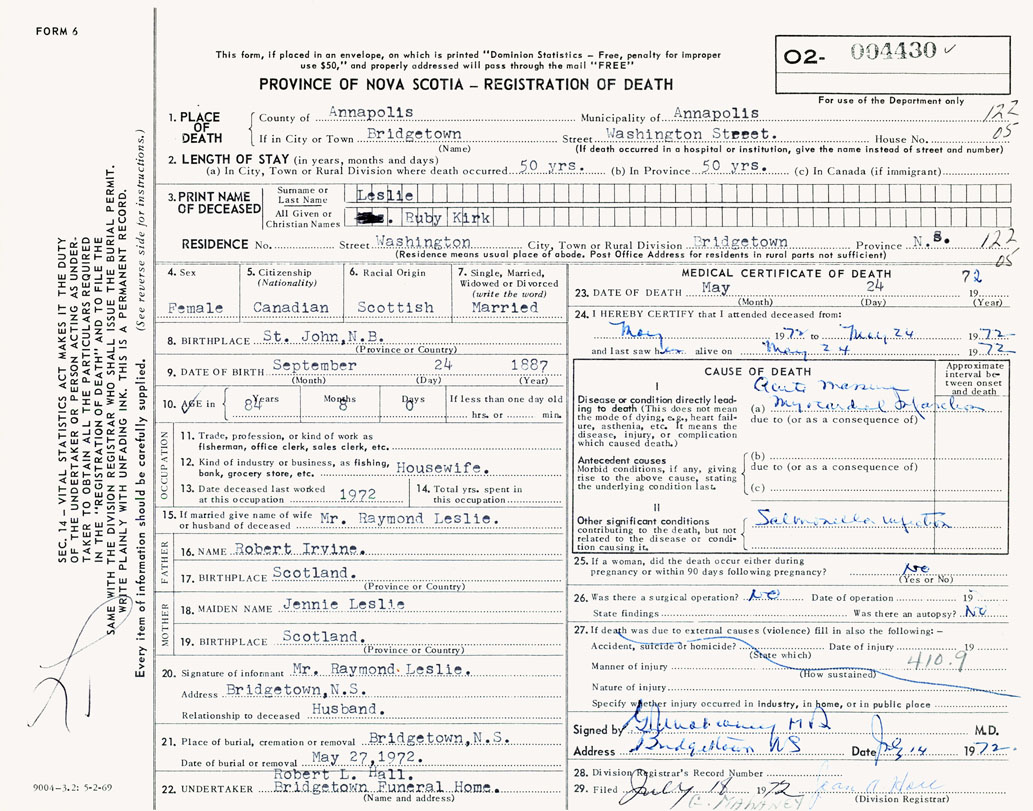 FORM 6
This form, if placed in an envelope, on which is printed "Dominion Statistics – Free, penalty for improper
use $50," and properly addressed will pass through the mail "FREE"
PROVINCE OF NOVA SCOTIA – REGISTRATION OF DEATH
O2- 004430
For use of the Department only
SEC. 14 – VITAL STATISTICS ACT MAKES IT THE DUTY
OF THE UNDERTAKER OR PERSON ACTING AS UNDER-
TAKER TO OBTAIN ALL THE PARTICULARS REQUIRED
IN THE "REGISTRATION OF DEATH" AND TO FILE THE
SAME WITH THE DIVISION REGISTRAR WHO SHALL ISSUE THE BURIAL PERMIT.
WRITE PLAINLY WITH UNFADING INK. THIS IS A PERMANENT RECORD.
Every item of information should be carefully supplied. (See reverse side for instructions.)
1. PLACE OF DEATH County of Annapolis Municipality of Annapolis 122
If in City or Town Bridgetown Street Washington Street. House No. 05
(Name) (If death occurred in a hospital or institution, give the name instead of street and number)
2. LENGTH OF STAY (in years, months and days)
(a) In City, Town or Rural Division where death occurred 50 yrs. (b) In Province 50 yrs. (c) In Canada (if immigrant)
3. PRINT NAME OF DECEASED Surname or Last Name Leslie
All Given or Christian Names . Ruby Kirk
RESIDENCE No. Street Washington City, Town or Rural Division Bridgetown Province N.S. 122
(Residence means usual place of abode. Post Office Address for residents in rural parts not sufficient) 05
4. Sex Female
5. Citizenship (Nationality) Canadian
6. Racial Origin Scottish
7. Single, Married, Widowed or Divorced (write the word) Married
8. BIRTHPLACE St. John,N.B.
(Province or Country)
9. DATE OF BIRTH September 24 1887
(Month) (Day) (Year)
10. AGE in 84 Years 8 Months 0 Days If less than one day old
hrs. or min.
OCCUPATION
11. Trade, profession, or kind of work as
fisherman, office clerk, sales clerk, etc.
12. Kind of industry or business, as fishing,
bank, grocery store, etc. Housewife.
13. Date deceased last worked at this occupation 1972
14. Total yrs. spent in this occupation
15. If married give name of wife
or husband of deceased Mr. Raymond Leslie.
FATHER
16. NAME Robert Irvine.
17. BIRTHPLACE Scotland.
(Province or Country)
MOTHER
18. MAIDEN NAME Jennie Leslie
19. BIRTHPLACE Scotland.
(Province or Country)
20. Signature of informant Mr. Raymond Leslie.
Address Bridgetown,N.S.
Relationship to deceased Husband.
21. Place of burial, cremation or removal Bridgetown,N.S.
Date of burial or removal May 27,1972.
Robert L. Hall.
22. UNDERTAKER Bridgetown Funeral Home.
(Name and address)
9004-3.2: 5-2-69
MEDICAL CERTIFICATE OF DEATH 72
23. DATE OF DEATH May 24 19
(Month) (Day) (Year)
24. I HEREBY CERTIFY that I attended deceased from:
May 1972 to May 24 1972
and last saw her alive on May 24 1972
CAUSE OF DEATH
Approximate interval between onset and death
I
Disease or condition directly lead-
ing to death (This does not mean
the mode of dying, e.g., heart fail-
ure, asthenia, etc. It means the
disease, injury, or complication
which caused death.)
Acute Massive
(a) Myocardial Infarction
due to (or as a consequence of)
Antecedent causes
Morbid conditions, if any, giving
rise to the above cause, stating
the underlying condition last.
(b)
due to (or as a consequence of)
(c)
II
Other significant conditions
contributing to the death, but not
related to the disease or condi-
tion causing it.
Salmonella infection
25. If a woman, did the death occur either during
pregnancy or within 90 days following pregnancy? No
(Yes or No)
26. Was there a surgical operation? No Date of operation 19
State findings Was there an autopsy? No
27. If death was due to external causes (violence) fill in also the following: –
Accident, suicide or homicide? Date of injury 19
(State which)
Manner of injury 410.9
(How sustained)
Nature of injury
Specify whether injury occurred in Industry, in home, or in public place
Signed by M.D.
Address Bridgetown NS Date July 14 1972.
28. Division Registrar's Record Number
29. Filed July 18 1972
(Division Registrar)